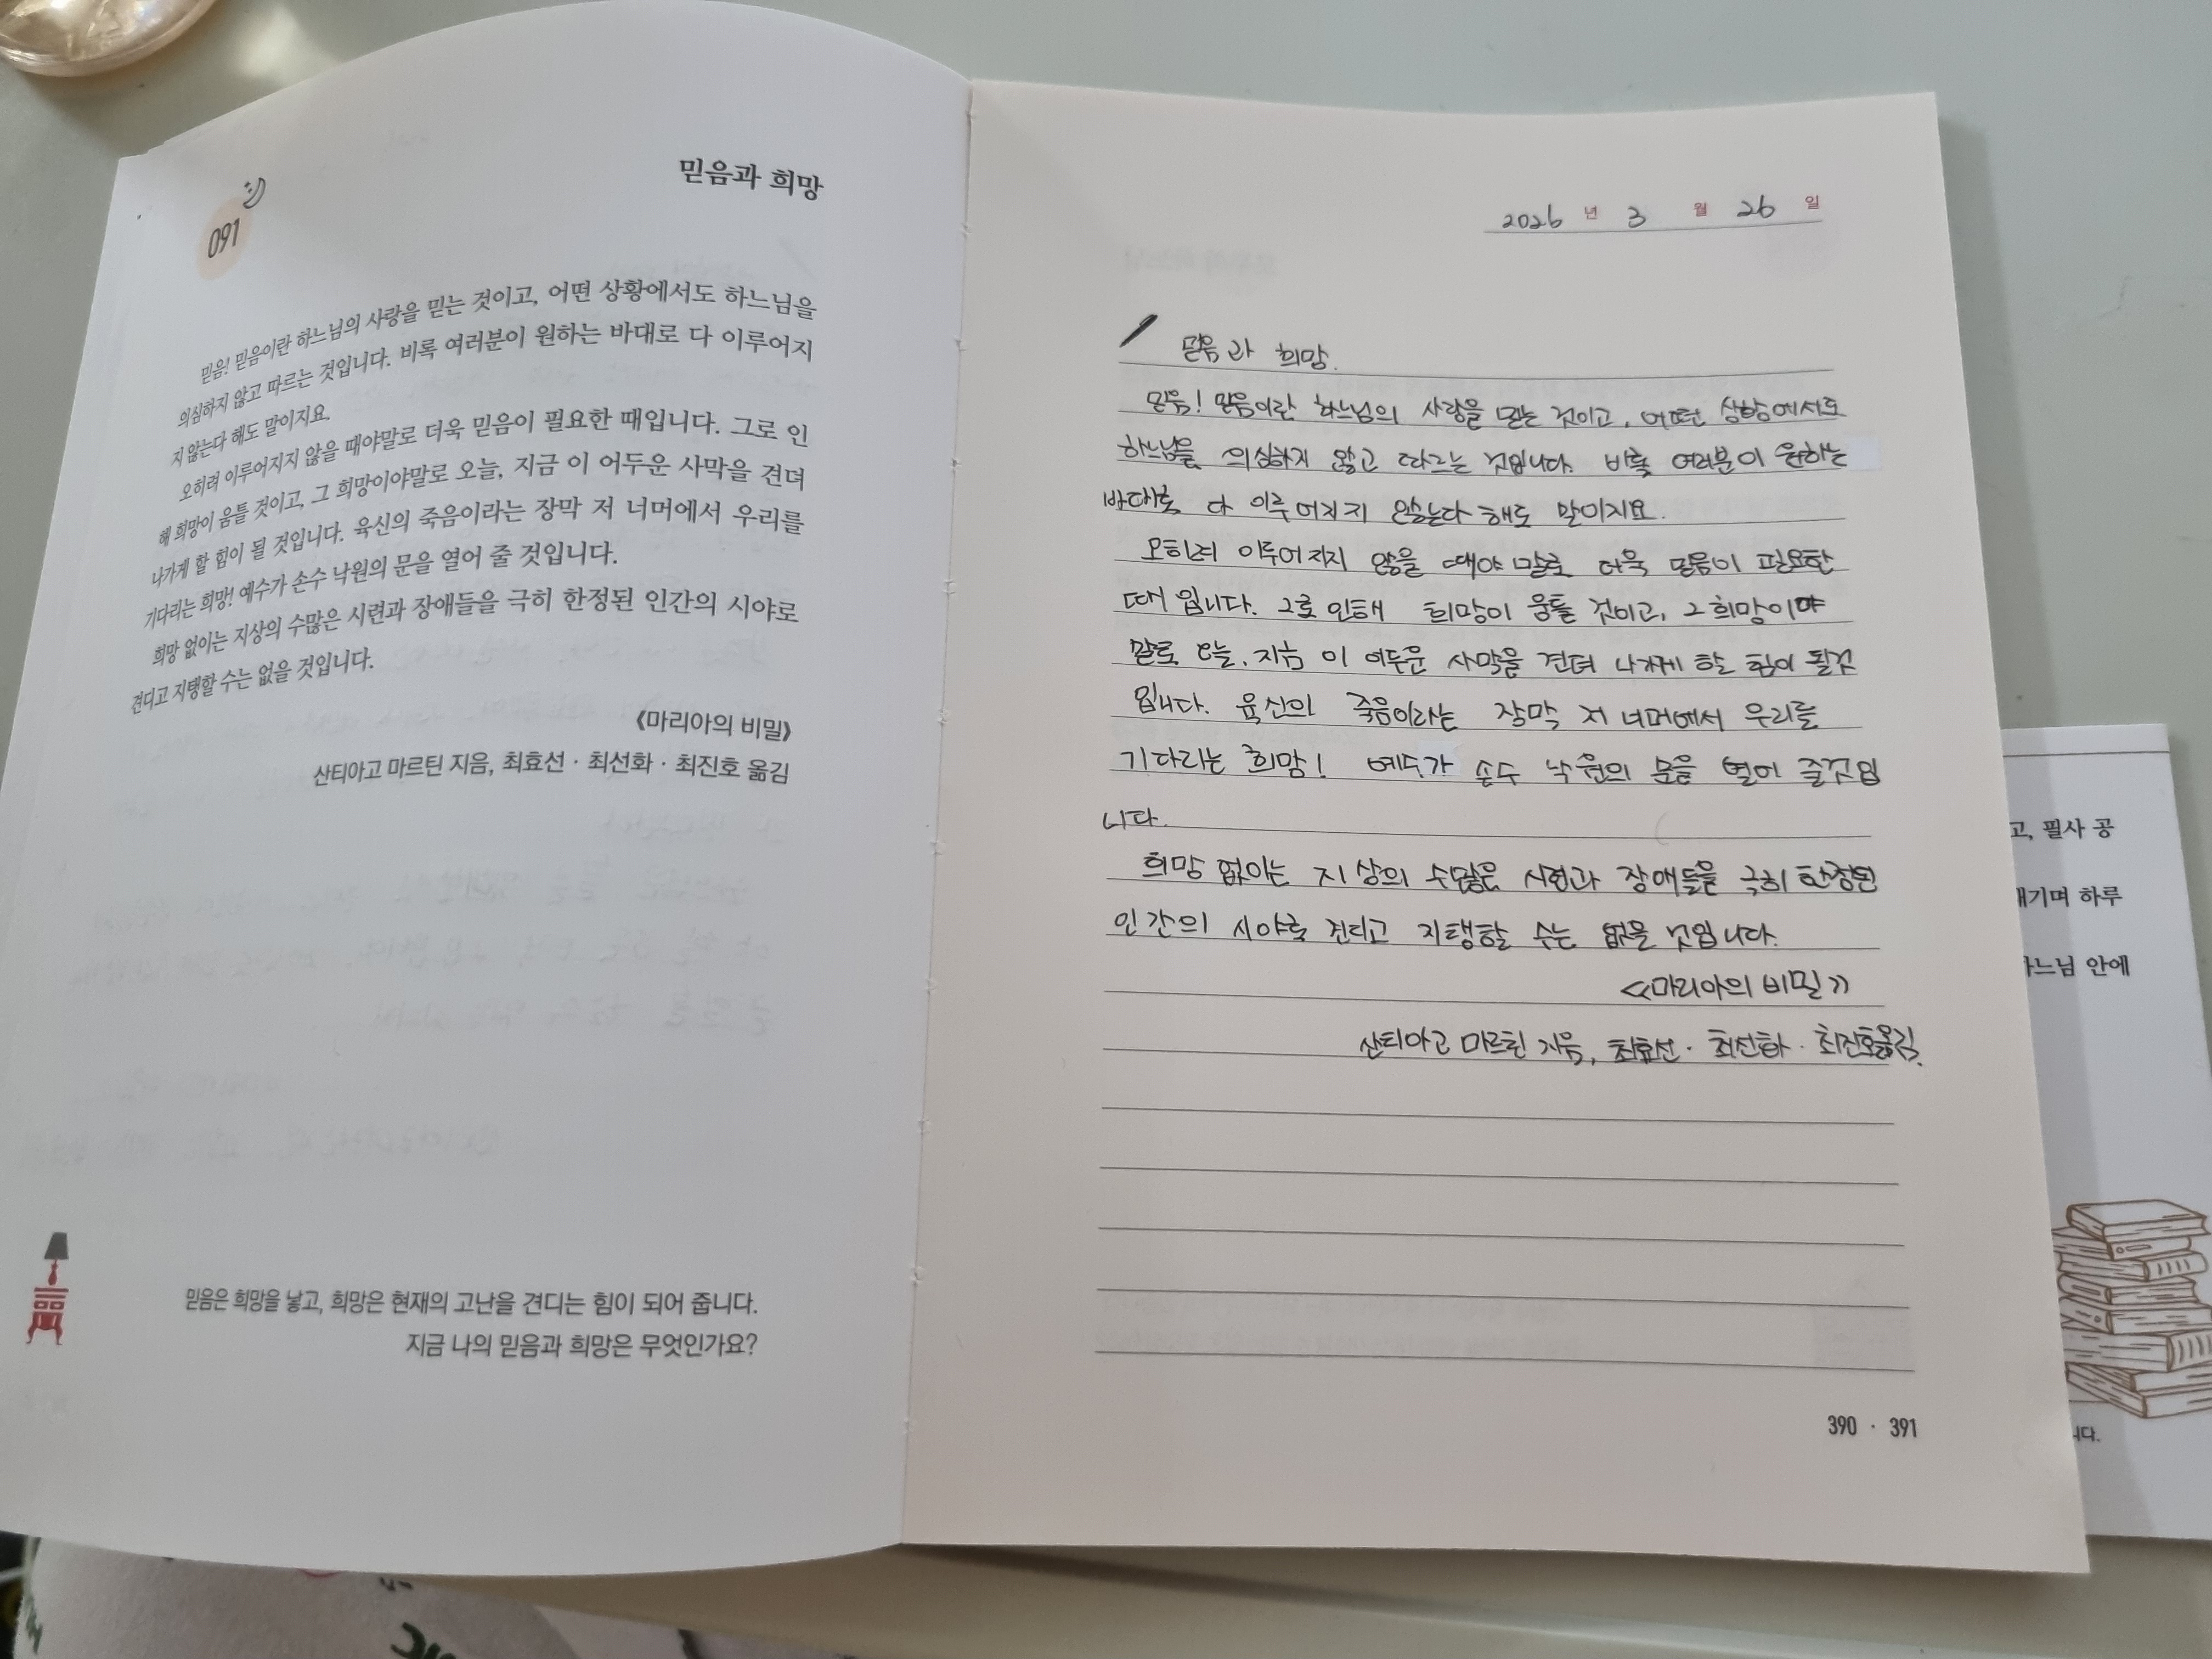 믿음과 희망
091
믿음! 믿음이란 하느님의 사랑을 믿는 것이고, 어떤 상황에서도 하느님을
의심하지 않고 따르는 것입니다. 비록 여러분이 원하는 바대로 다 이루어지
지 않는다 해도 말이지요.
오히려 이루어지지 않을 때야말로 더욱 믿음이 필요한 때입니다. 그로 인
해 희망이 움틀 것이고, 그 희망이야말로 오늘, 지금 이 어두운 사막을 견뎌
나가게 할 힘이 될 것입니다. 육신의 죽음이라는 장막 저 너머에서 우리를
기다리는 희망! 예수가 손수 낙원의 문을 열어 줄 것입니다.
희망 없이는 지상의 수많은 시련과 장애들을 극히 한정된 인간의 시야로
견디고 지탱할 수는 없을 것입니다.
《마리아의 비밀》
산티아고 마르틴 지음, 최효선 · 최선화 · 최진호 옮김
믿음은 희망을 낳고, 희망은 현재의 고난을 견디는 힘이 되어 줍니다.
지금 나의 믿음과 희망은 무엇인가요?
2026 년 3 월 26 일
믿음과 희망.
믿음! 믿음이란 하느님의 사랑을 믿는 것이고, 어떤 상황에서도
하느님을 의심하지 않고 따르는 것입니다. 비록 여러분이 원하는
바대로 다 이루어지지 않는다 해도 말이지요.
오히려 이루어지지 않을 때야말로 더욱 믿음이 필요한
때입니다. 그로 인해 희망이 움틀 것이고, 그 희망이야
말로 오늘, 지금 이 어두운 사막을 견뎌 나가게 할 힘이 될것
입니다. 육신의 죽음이라는 장막 저 너머에서 우리를
기다리는 희망! 예수가 손수 낙원의 문을 열어 줄것입
니다.
희망 없이는 지상의 수많은 시련과 장애들을 극히 한정된
인간의 시야로 견디고 지탱할 수는 없을 것입니다.
《마리아의 비밀》
산티아고 마르틴 지음, 최효선 · 최선화 · 최진호옮김.
390 · 391
고, 필사 공
새기며 하루
하느님 안에
니다.